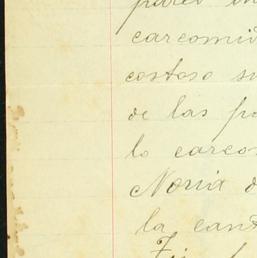 pared
carcomid
costoso su
de las pa
lo carcom
Noria d
la cant